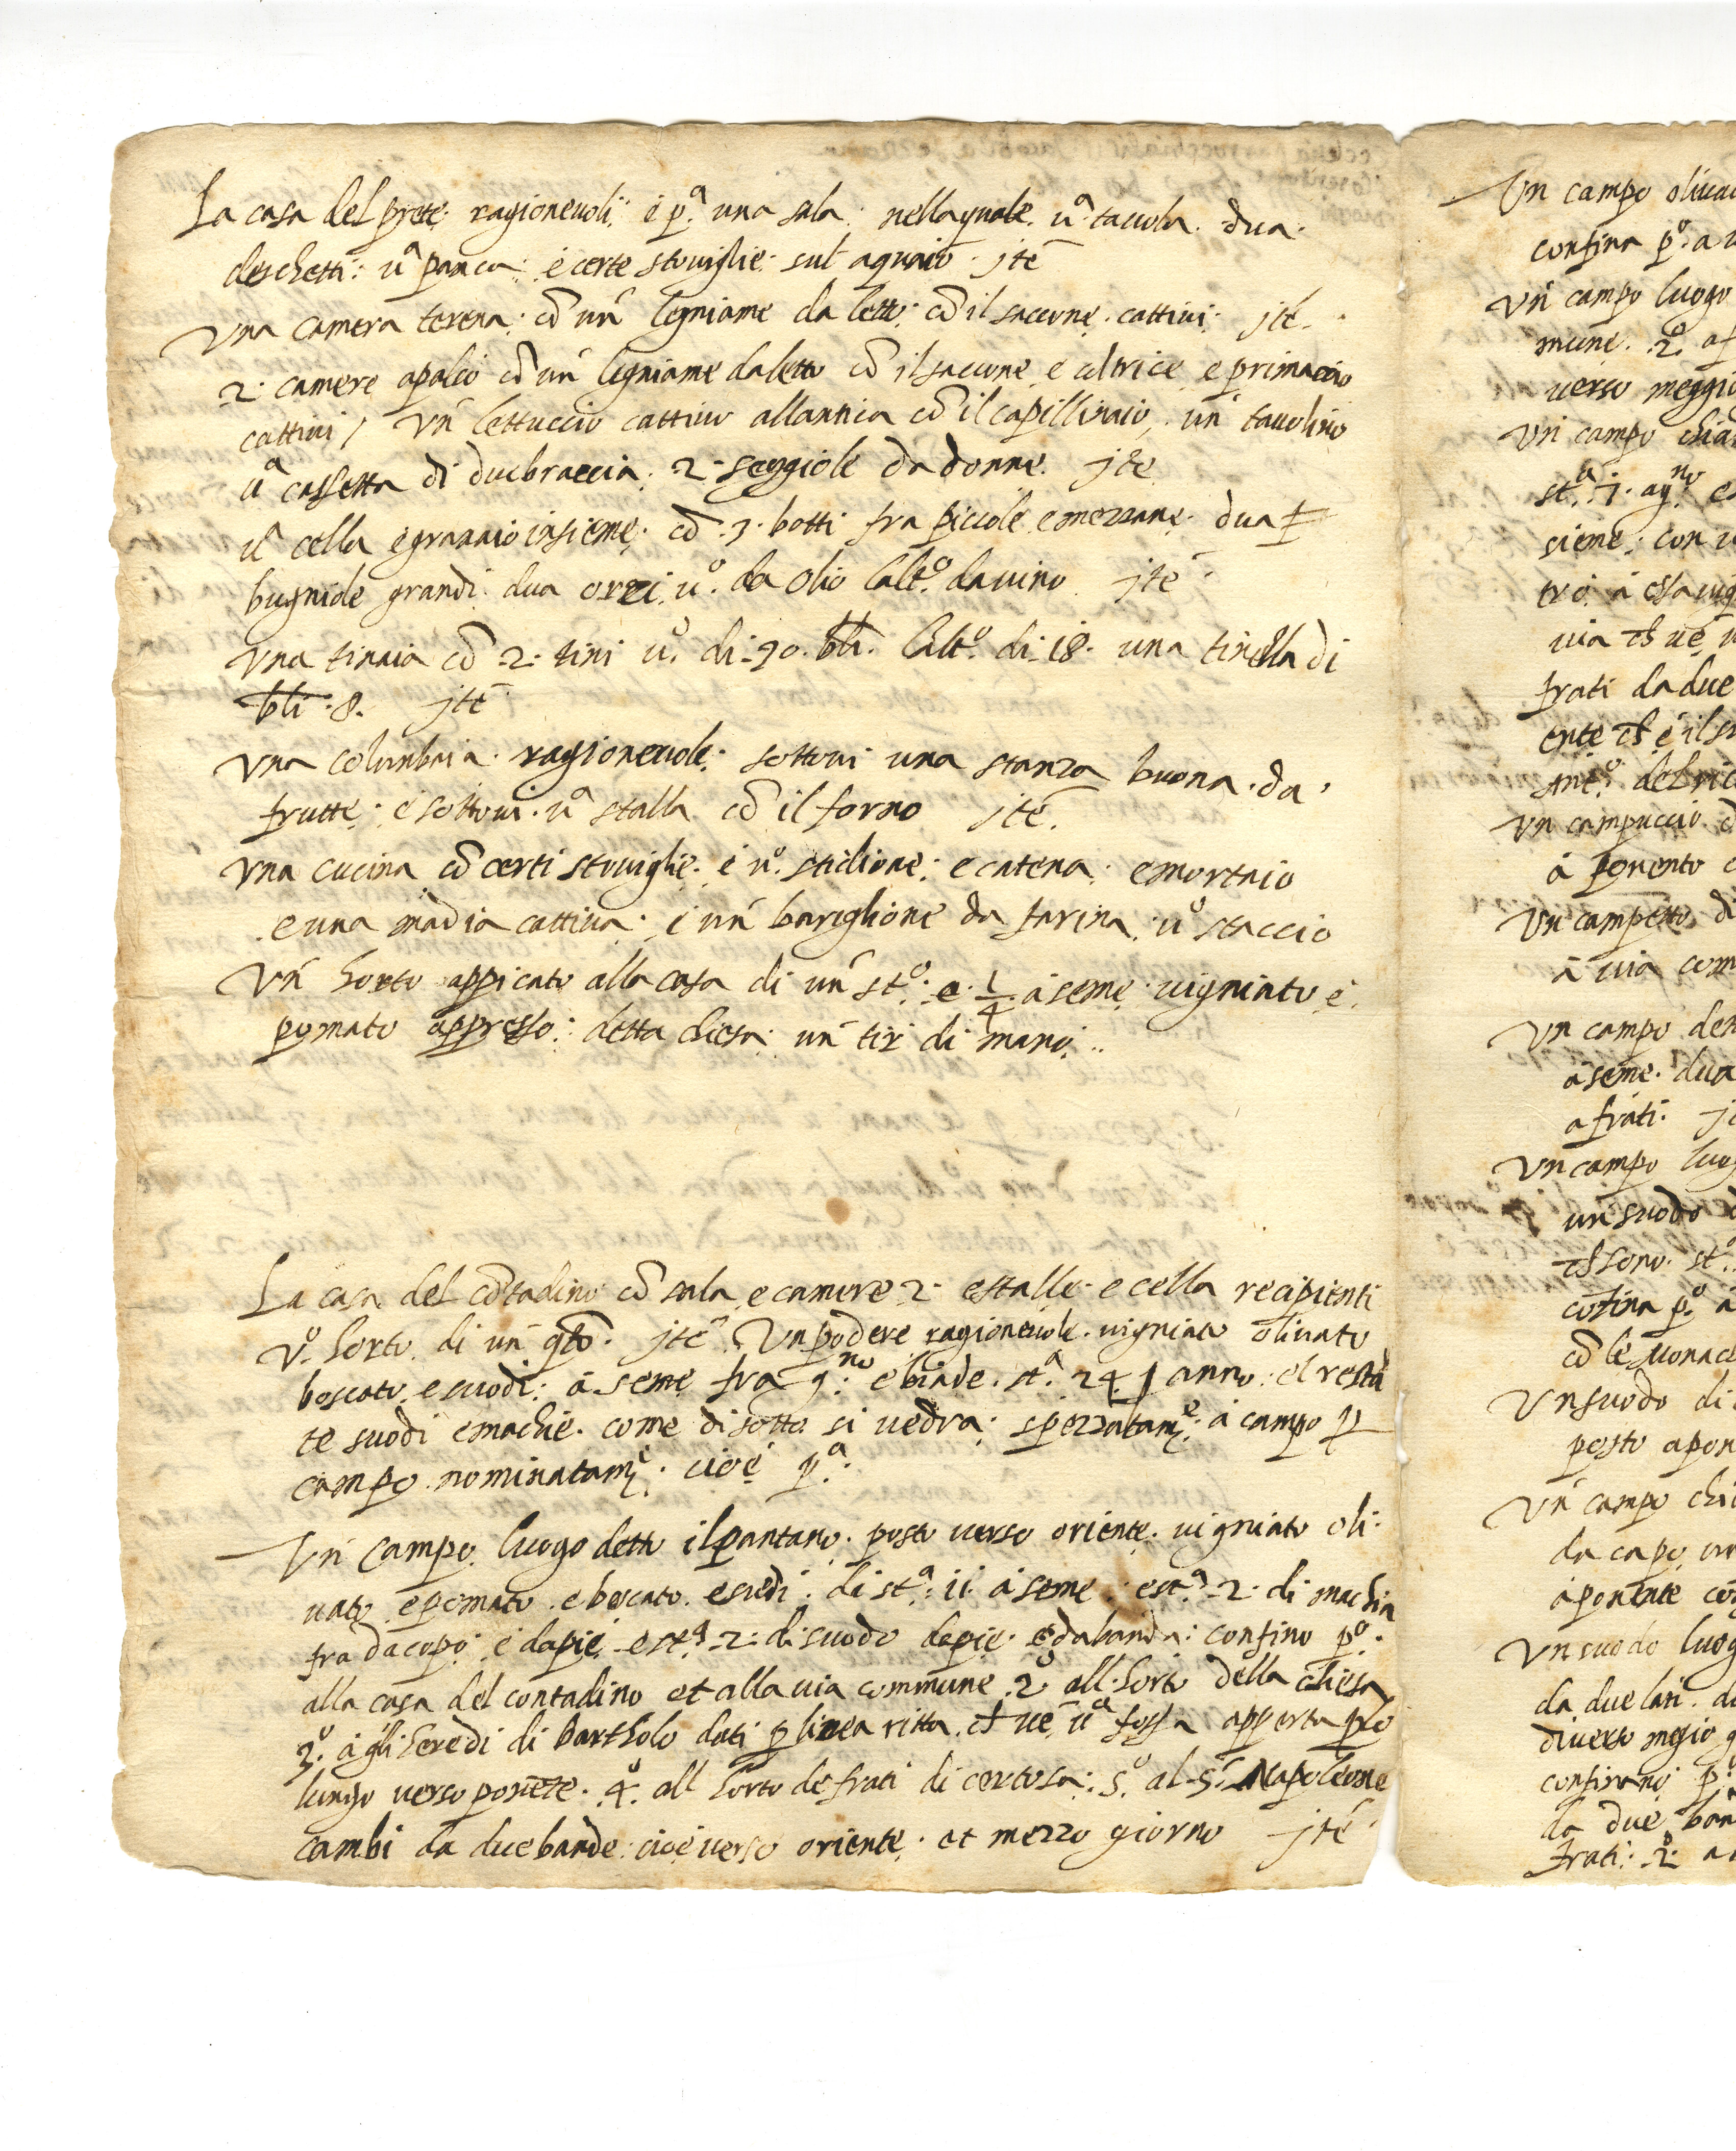 La casa del prete: ragionevoli: é pª. una sala: nella quale. uª. tavola. dua.
deschetti: uª panca: é certe stoviglie: sul aquaio. jtē
Vna camera terena: cō un' legniame da letto: cō il saccone. cattivi: jtē.
2. camere apalco cō un' legniame daletto cō il saccone e coltrice e primaccio
cattivi / Vn' lettuccio cattivo allantica cō il capillinaio, un' tavolino
uª cassetta di duebraccia. 2. seggiole da donne. jtē
uª cella é granaio insieme. cō .3. botti fra piccole e mezzane. dua
bugniole grandi. dua orzi. uº. da olio laltº. da vino jtē
Vna tinaia cō 2. tini uº. di. 30. bli. laltº. di. 18. una tinella di
bli. 8. jtē
Vna colombaia. ragionevole: sottovi una stanza buona. da.
frutte: é sottovi. uª stalla cō il forno jtē.
Vna cucina cō certi stoviglie. é uº. stidione: e catena: e mortaio
e una madia cattiva. é un' bariglione da farina. uº staccio
Vn' horto appicato alla casa di un' stº: e. 1/4 á seme vigniato é.
pomato appresso: detta chiesa: un' tir di mano..
La casa del cōtadino cō sala e camere 2. e stalle. e cella recipienti
Vº. horto. di un' qto. jtē. Un podere ragionevole. vigniato olivato
boscato e suodi: á seme fra gno. e biade. stª. 24 ꝑ anno: el resta
te suodi e machie. come disotto si vedra: spezzatamē: á campo ꝑ
campo. nominatamē. cioé pª.
Vn' campo. luogo detto il pantano. posto verso oriente. vigniato oli.
vato e pomato. e boscato. e suodi: di stª: 11. á seme. e stª. 2. di machia
fra dacapo: é dapié e stª. 2. di suodo dapie. e dabanda: confino pº.
alla casa del contadino et alla via commune .2º all. horto della chiesa
3º. á gli heredi di Bartholo dati ꝑ linea ritta. ch' ué uª fossa apperta ꝑ lo
lungo verso ponēte. 4º. all horto de frati di certosa: 5º. al. S. Napoleone
cambi da due bande: cioé verso oriente. et mezzo giorno jtē
Vn campo
confina pº. a
Vn' campo luogo
mune. 2º. a
verso meggio
Vn' campo
siene: con
frati da due
Vn campuccio
á ponento
Vn campetto
á via com
Vn campo
á seme. dua
a frati.
Vn campo
un' suodo
Vn suodo di
posto
Vn' campo
da capo
á ponente
Vn suodo
da due lati.
diverso
confinano
da due
frati: 2º